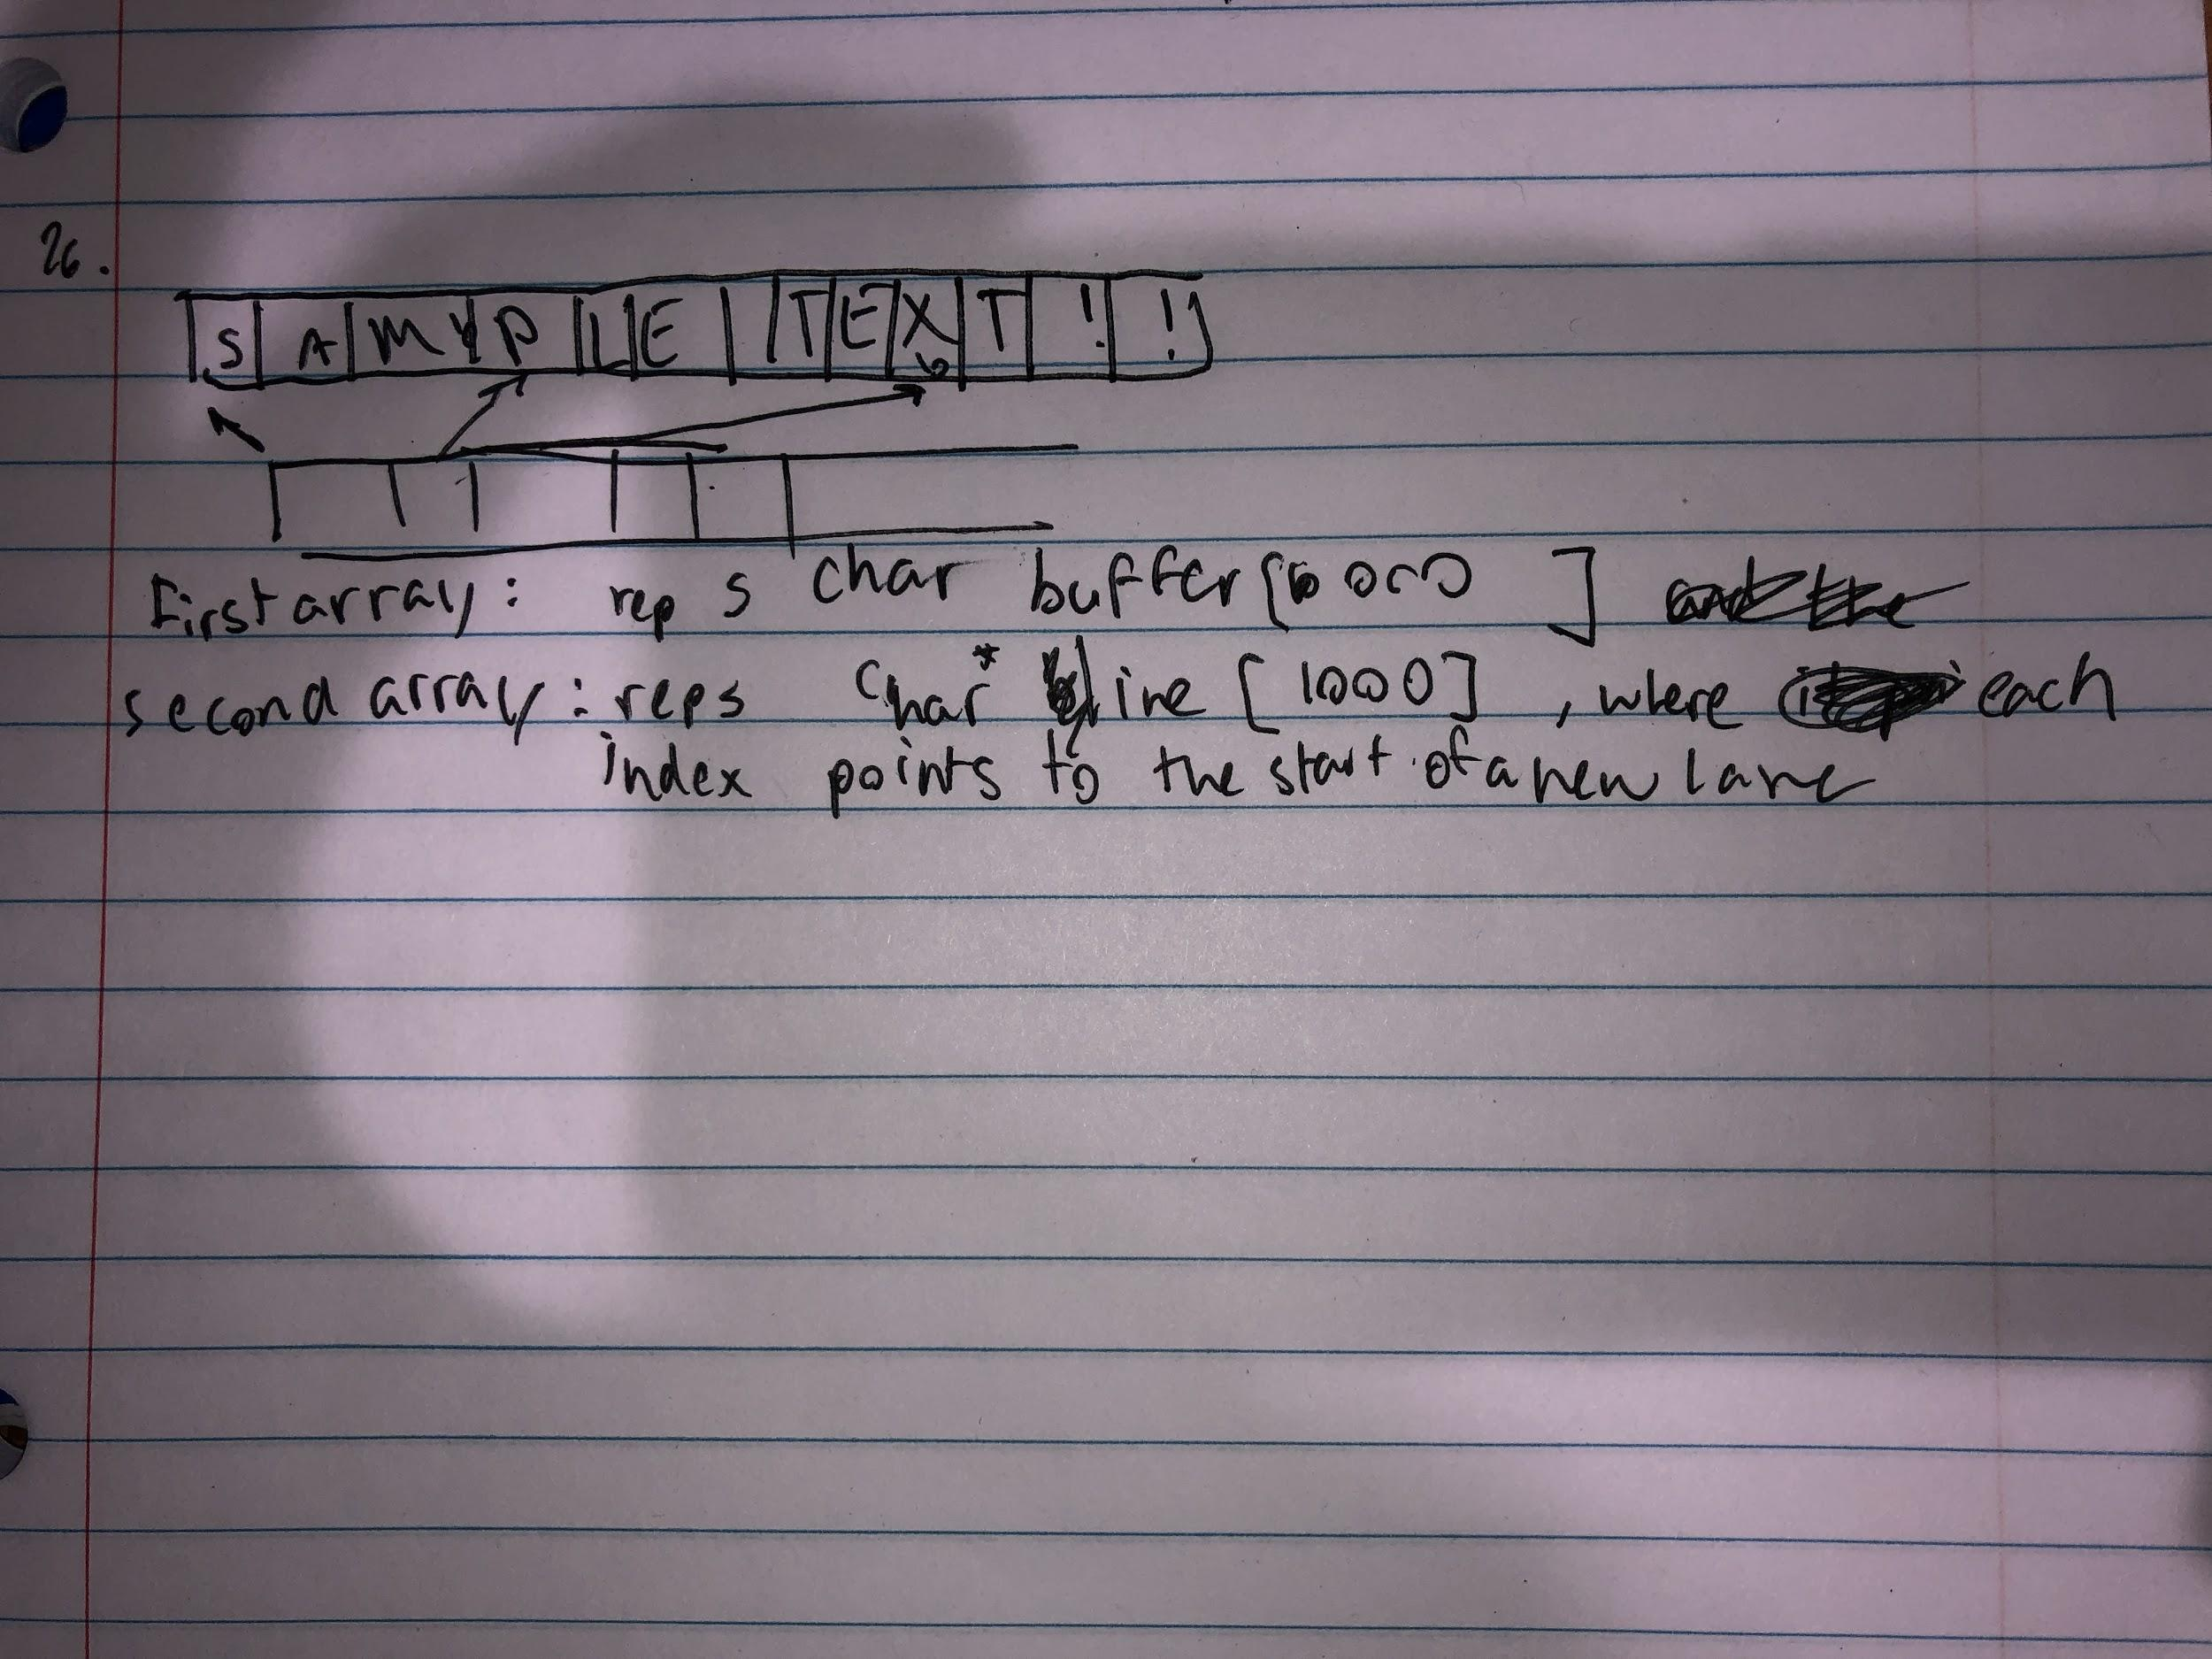 26.
S A M P L E T E X T ! !
First array: reps char buffer[ ]
second array: reps char* line [1000], where each
index points to the start of a new lane